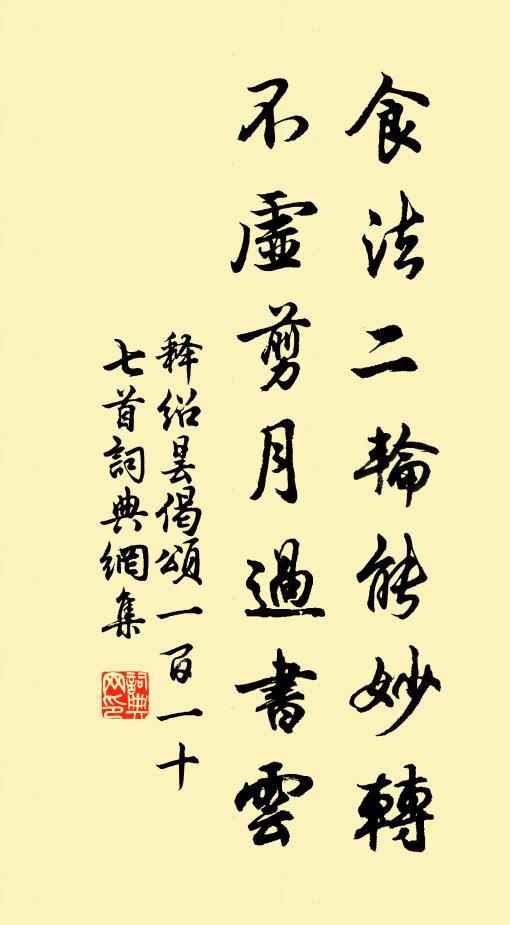 食法二輪能妙轉
不虛剪月過書雲
释绍昙偈頌一百一十
七首詞典網集
詞典网印